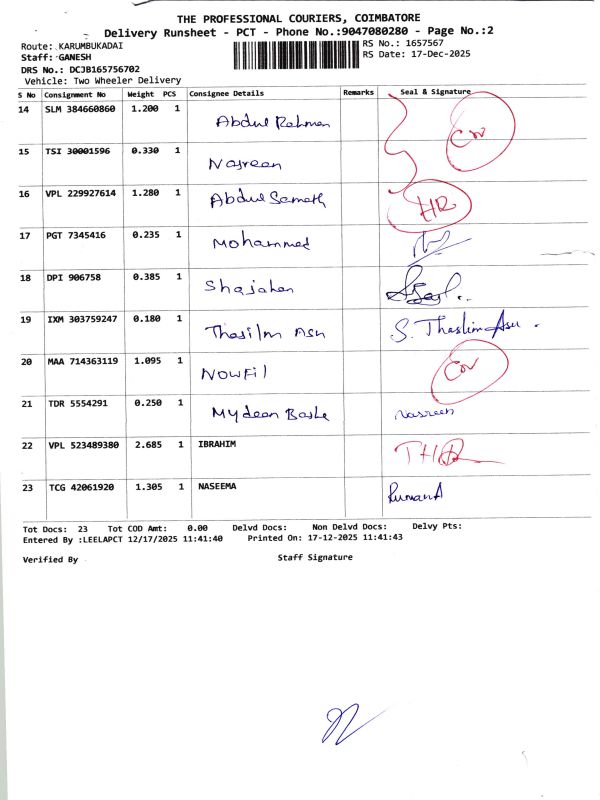 THE PROFESSIONAL COURIERS, COIMBATORE
Delivery Runsheet - PCT - Phone No.:9047080280 - Page No.:2
Route: KARUMBUKADAI RS No.: 1657567
Staff: GANESH RS Date: 17-Dec-2025
DRS No.: DCJB165756702
Vehicle: Two Wheeler Delivery
S No Consignment No Weight PCS Consignee Details Remarks Seal & Signature
14 SLM 384660860 1.200 1 Abdul Rahman
15 TSI 30001596 0.330 1 Nasreen
16 VPL 229927614 1.280 1 Abdul Samath
17 PGT 7345416 0.235 1 Mohammed
18 DPI 906758 0.385 1 Shajahan
19 IXM 303759247 0.180 1 Thasilm Asu S. Thaslim Asu .
20 MAA 714363119 1.095 1 NOWFil
21 TDR 5554291 0.250 1 Mydeen Basha Nasreen
22 VPL 523489380 2.685 1 IBRAHIM
23 TCG 42061920 1.305 1 NASEEMA
Tot Docs: 23 Tot COD Amt: 0.00 Delvd Docs: Non Delvd Docs: Delvy Pts:
Entered By :LEELAPCT 12/17/2025 11:41:40 Printed On: 17-12-2025 11:41:43
Verified By Staff Signature